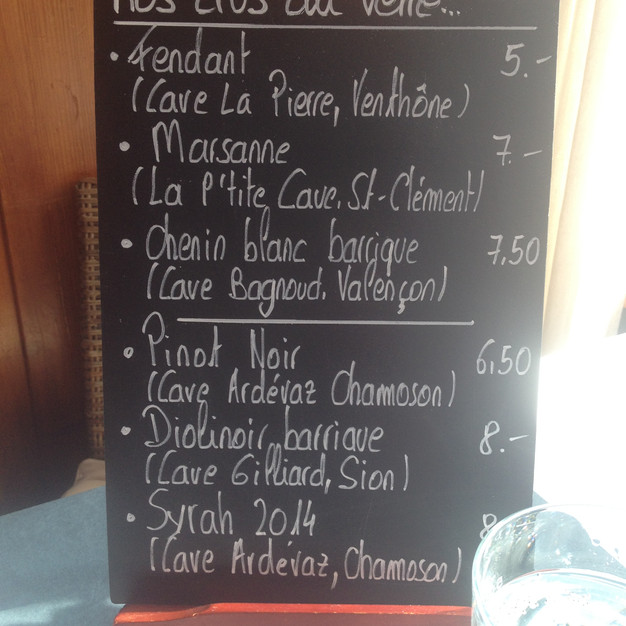 Nos crus au verre...
• Fendant 5.-
(Cave La Pierre, Venthône)
• Marsanne 7.-
(La P'tite Cave, St-Clément)
• Chenin blanc barrique 7,50
(Cave Bagnoud, Valençon)
• Pinot Noir 6,50
(Cave Ardévaz Chamoson)
• Diolinoir barrique 8.-
(Cave Gilliard, Sion)
• Syrah 2014 8
(Cave Ardévaz, Chamoson)